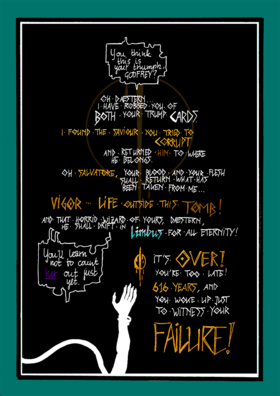 You think
this is
your triumph,
GODFREY?
OH DAESTERN...
I HAVE ROBBED YOU OF
BOTH YOUR TRUMP CARDS
I FOUND THE SAVIOUR YOU TRIED TO
CORRUPT
AND RETURNED HIM TO WHERE
HE BELONGS.
OH SALVATORE, YOUR BLOOD AND YOUR FLESH
SHALL RETURN WHAT HAS
BEEN TAKEN FROM ME...
VIGOR ~ LIFE OUTSIDE THIS TOMB!
AND THAT HORRID WIZARD OF YOURS, DAESTERN,
HE SHALL DRIFT IN Limbus FOR ALL ETERNITY!
You'll learn
not to count
her out just
yet.
IT'S OVER!
YOU'RE TOO LATE!
616 YEARS, AND
YOU WOKE UP JUST
TO WITNESS YOUR
FAILURE!